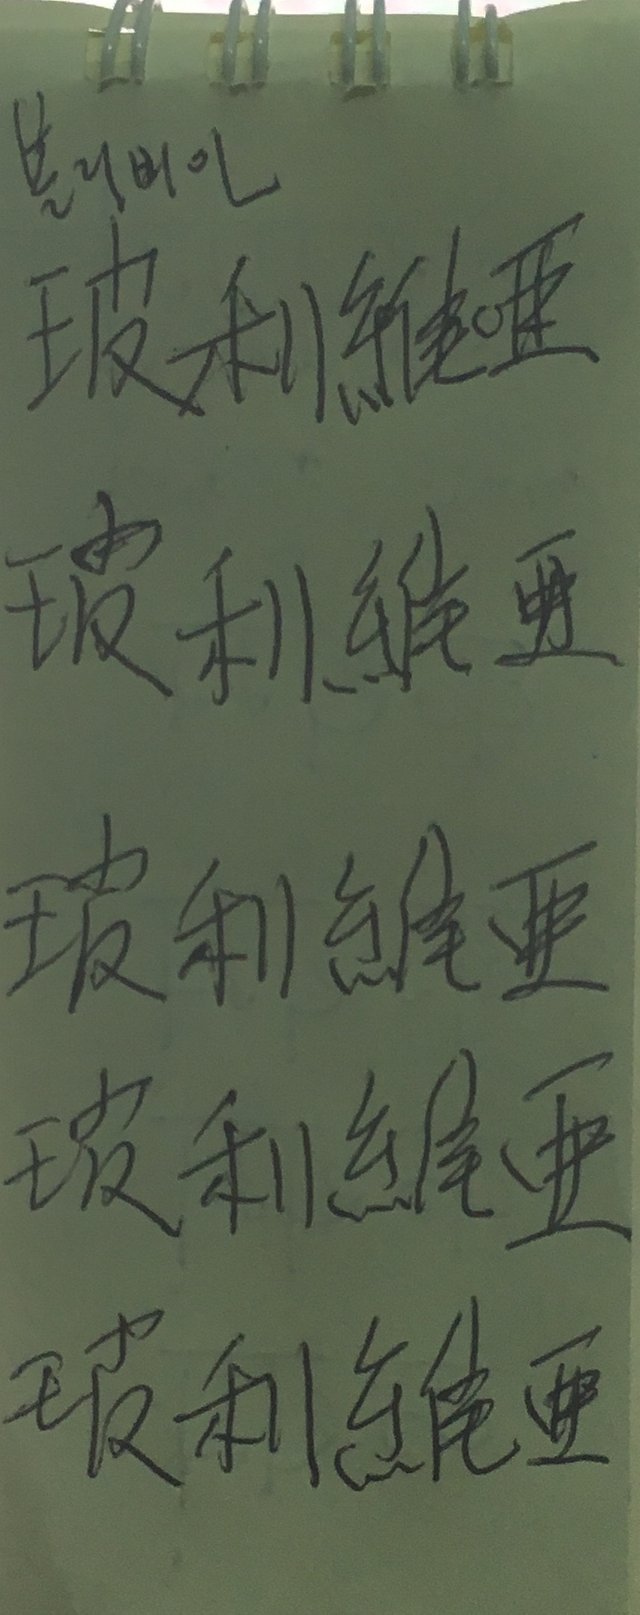 볼리비아
玻利維亞
玻利維亞
玻利維亞
玻利維亞
玻利維亞